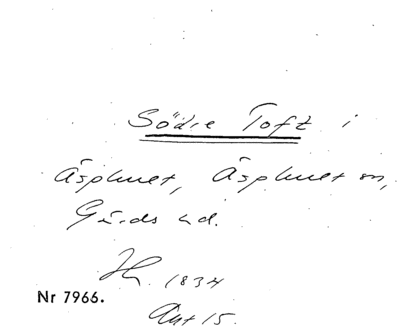 Södre Toft i
Äsphult, Äsphult sn,
Gärds hd.
1834
Nr 7966.
Akt 15.